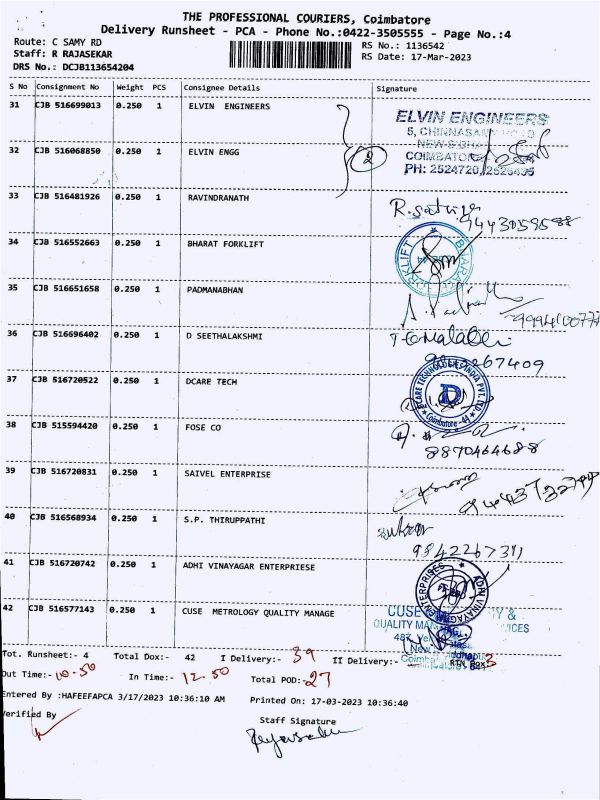 THE PROFESSIONAL COURIERS, Coimbatore
Delivery Runsheet - PCA - Phone No.:0422-3505555 - Page No.:4
Route: C SAMY RD
Staff: R RAJASEKAR
DRS No.: DCJB113654204
RS No.: 1136542
RS Date: 17-Mar-2023
S No Consignment No Weight PCS Consignee Details Signature
31 CJB 516699013 0.250 1 ELVIN ENGINEERS
ELVIN ENGINEERS
5, CHINNASAMY ROAD
COIMBATO
PH: 2524720, 2526495
2
32 CJB 516068850 0.250 1 ELVIN ENGG
33 CJB 516481926 0.250 1 RAVINDRANATH
9443059588
34 CJB 516552663 0.250 1 BHARAT FORKLIFT
BHARAT FORKLIFT
35 CJB 516651658 0.250 1 PADMANABHAN
36 CJB 516696402 0.250 1 D SEETHALAKSHMI
37 CJB 516720522 0.250 1 DCARE TECH
D
Coimbatore - 44
38 CJB 515594420 0.250 1 FOSE CO
8870464688
39 CJB 516720831 0.250 1 SAIVEL ENTERPRISE
40 CJB 516568934 0.250 1 S.P. THIRUPPATHI
41 CJB 516720742 0.250 1 ADHI VINAYAGAR ENTERPRIESE
ADHI VINAYAGAR ENTERPRISES
42 CJB 516577143 0.250 1 CUSE METROLOGY QUALITY MANAGE
CUSE
QUALITY
Tot. Runsheet:- 4 Total Dox:- 42 I Delivery:- 39 II Delivery:- RTN Dox 3
Out Time:- 10.50 In Time:- 12.50 Total POD:- 27
Entered By :HAFEEFAPCA 3/17/2023 10:36:10 AM Printed On: 17-03-2023 10:36:40
Verified By
Staff Signature